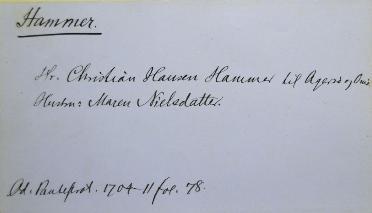 Hammer.
Hr. Christian Hansen Hammer til Agersø og Omø.
Hustru: Maren Nielsdatter.
Panteprot. 1704-11 fol. 78.